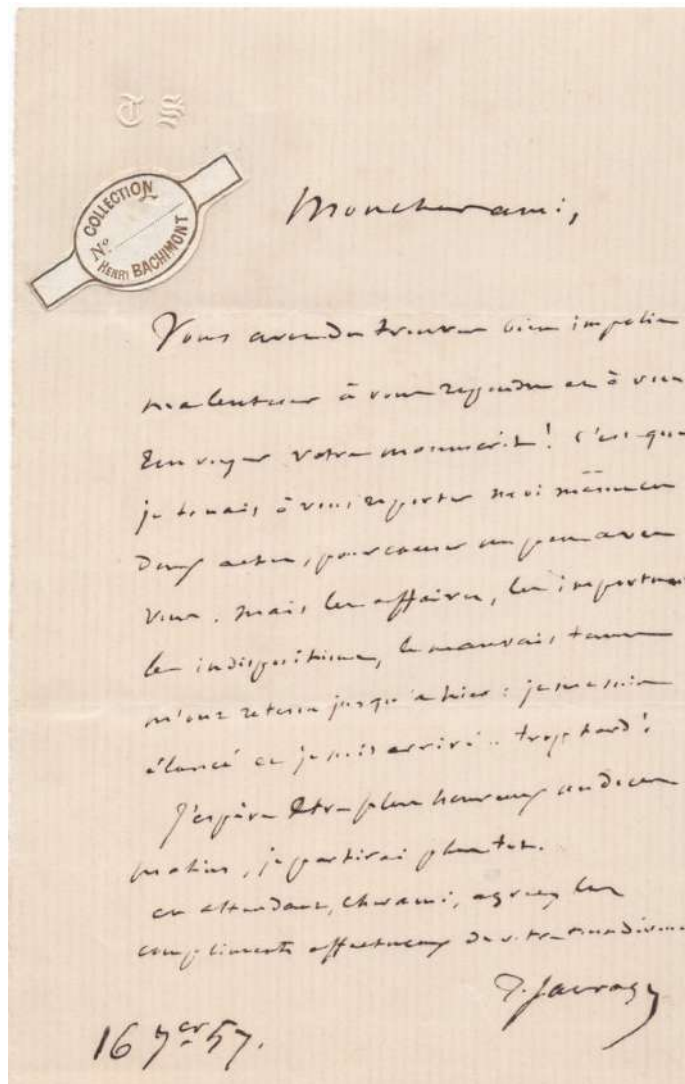 T S
COLLECTION
No.
HENRI BACHIMONT
Mon cher ami,
Vous avez du trouver bien impolie
ma lenteur à vous répondre et à vous
envoyer votre manuscrit! C'est que
je tenais à vous reporter moi même
deux actes, pour causer un peu avec
vous. Mais les affaires, les importuns
les indispositions, le mauvais temps
m'ont retenu jusqu'à hier: je me suis
élancé et je suis arrivé.. trop tard!
J'espère être plus heureux
matin, je partirai plus tôt.
en attendant, cher ami, agréez les
compliments affectueux de votre
T. Sauvage
16 7er 57.